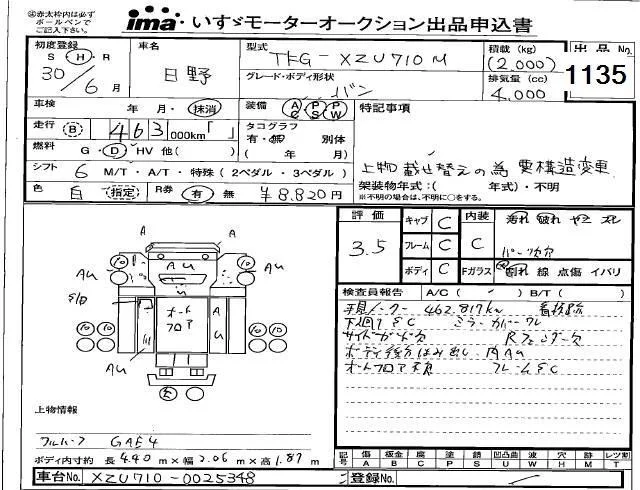 ㊟赤太枠内は必ず
ボールペンで
ご記入下さい。
ima いすゞモーターオークション出品申込書
初度登録 S Ⓗ・R 30/6月
車名 日野
型式 TKG-XZU710M
グレード・ボディ形状 バン
積載(kg) (2,000)
排気量(cc) 4,000
出品No. 1135
車検 年 月・抹消
装備 AC PS PW
特記事項
走行 B 463 000km「 」
タコグラフ 有・無 別体
燃料 G・Ⓓ HV 他( )
( 年 月)
上物載せ替えの為要構造変更
シフト 6 M/T・A/T・特殊(2ペダル・3ペダル)
架装物年式:( 年式)・不明
※不明の場合は、不明に〇をする。
色 白 (指定) R券 有 無 ¥8,820円
評価 3.5
キャブ C
フレーム C
ボディ C
内装 C
汚れ 破れ ヤニ スレ
パーツ欠
Fガラス 割れ 線 点傷 イバリ
検査員報告 A/C( ) B/T( )
462,817km
下廻りSC ミラーカバーワレ
サイドガード欠 Rフェンダー欠
ボディ後方はみ出し 内AU
オートフロア不良 フレームSC
A A
AU AU AU
オートフロア
A U
AU
上物情報
フルハーフ GAE4
ボディ内寸約 長4.40m×幅2.06m×高1.87m
記号 傷A 板金B 腐C 塗P 錆S 凹凸曲U 波W 穴H 跡M レツ割T
車台No. XZU710-0025348
登録No.